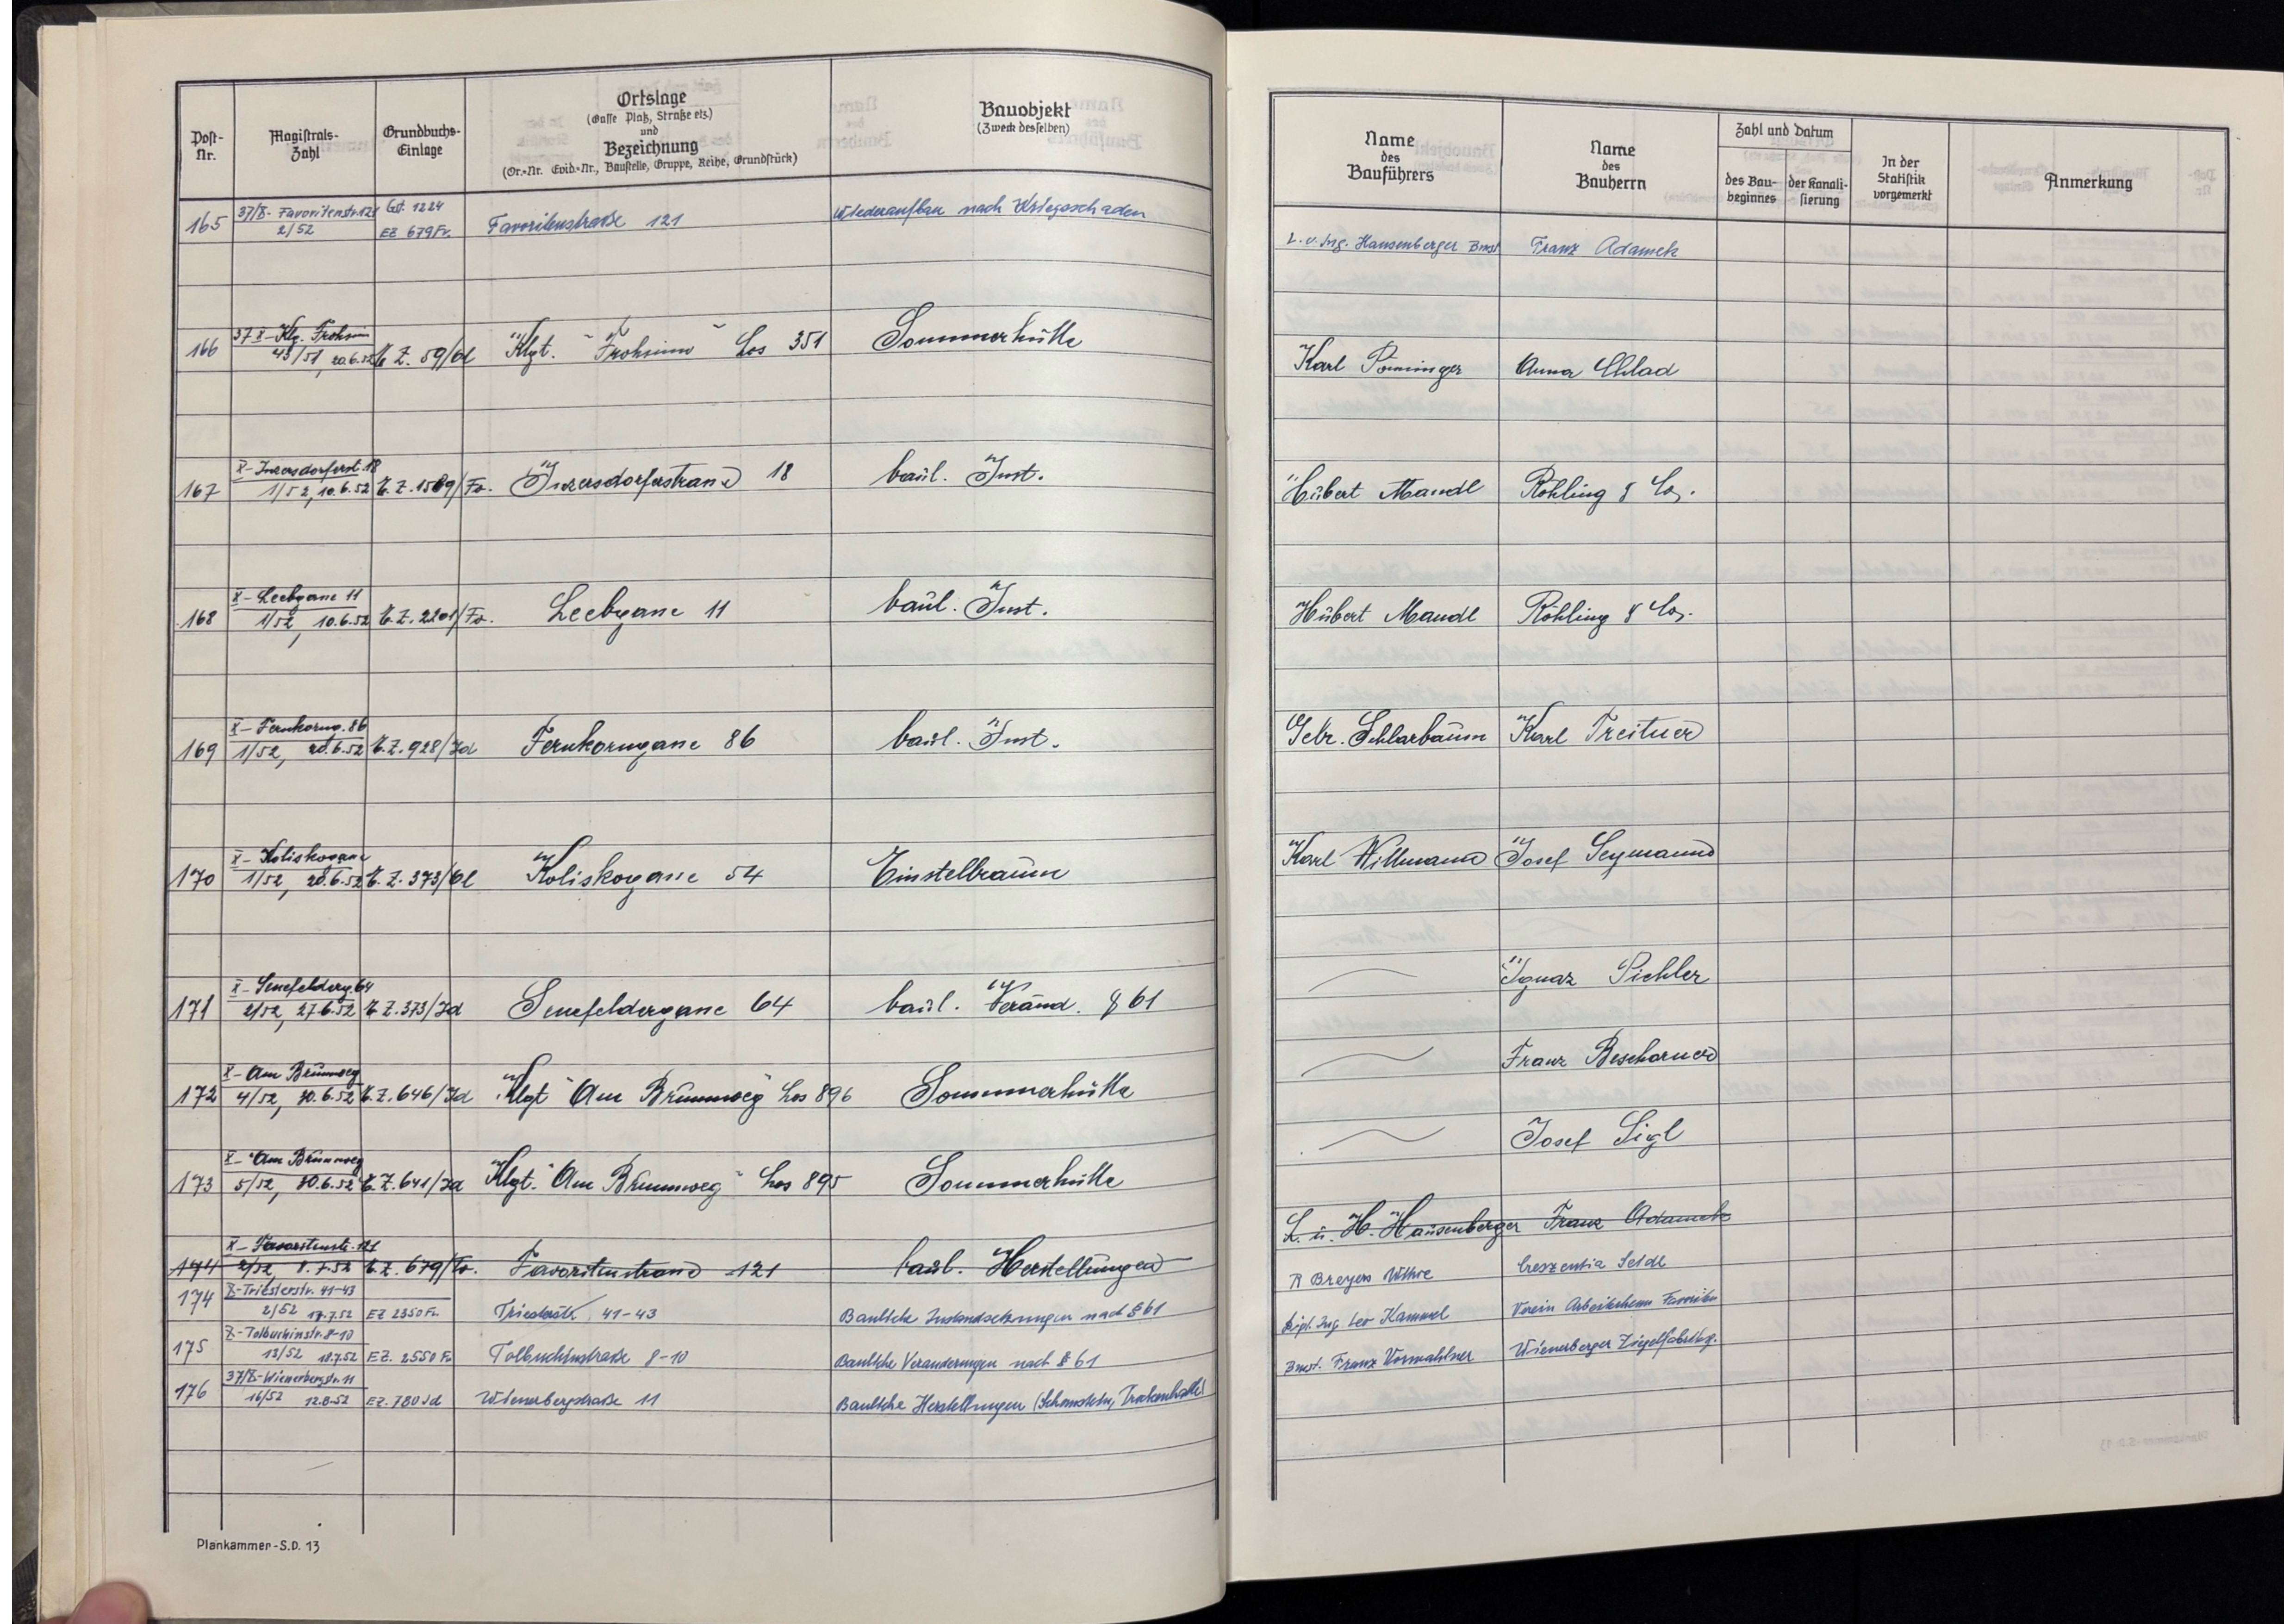 Post-Nr.
Magistrats-Zahl
Grundbuchs-Einlage
Ortslage
(Gasse Platz, Straße etz.)
und
Bezeichnung
(Or.=Nr. Evid.=Nr., Baustelle, Gruppe, Reihe, Grundstück)
Bauobjekt
(Zweck desselben)
Name des Bauführers
Name des Bauherrn
Zahl und Datum
des Bau-beginnes
der Kanali-sierung
In der Statistik vorgemerkt
Anmerkung
165 37/X- Favoritenstr. 121 2/52 Gst. 1224 EZ 679 Fv. Favoritenstraße 121 Wiederaufbau nach Kriegsschaden L. u. Ing. Hausenberger Bmst. Franz Adamek
166 37 X- Klg. Frohsinn 43/51, 20.6.52 E.Z. 59/Ol Klgt. "Frohsinn" Los 351 Sommerhütte Karl Anna
167 X- Inzersdorferst. 18 1/52, 10.6.52 E.Z. 1569/Fv. Inzersdorferstrasse 18 baul. Inst. Hubert Mandl Röhling & Co.
168 X- Leebgasse 11 1/52, 10.6.52 E.Z. 2201/Fv. Leebgasse 11 baul. Inst. Hubert Mandl Röhling & Co.
169 X- Fernkorng. 86 1/52, 20.6.52 E.Z. 928/Id Fernkorngasse 86 baul. Inst. Gebr. Schlarbaum Karl Treitner
170 X- Koliskogasse 1/52, 20.6.52 E.Z. 373/Ol Koliskogasse 54 Einstellraum Karl Willmann Josef Seymann
171 X- Senefelderg. 64 2/52, 27.6.52 E.Z. 373/Id Senefeldergasse 64 baul. Veränd. § 61 Ignaz Pichler
172 X- Am Brunnweg 4/52, 30.6.52 E.Z. 646/Id Klgt "Am Brunnweg" Los 896 Sommerhütte Franz Beschorner
173 X- "Am Brunnweg 5/52, 30.6.52 E.Z. 641/Id Klgt. "Am Brunnweg" Los 895 Sommerhütte Josef Sigl
174 X- Favoritenstr. 121 2/52, 8.7.52 E.Z. 679/Fv. Favoritenstrasse 121 baul. Herstellungen L. u. H. Hausenberger Franz Adamek
174 X- Triesterstr. 41-43 2/52 17.7.52 EZ 2350 Fv. Triesterstr. 41-43 Bauliche Instandsetzungen nach § 61 R Breyers Witwe Creszentia Seidl
175 X- Tolbuchinstr. 8-10 13/52 18.7.52 EZ. 2550 Fv Tolbuchinstraße 8-10 Bauliche Veränderungen nach § 61 Dipl. Ing. Leo Kammel Verein Arbeiterheim Favoriten
176 37/X- Wienerbergstr. 11 16/52 12.8.52 EZ. 780 Id Wienerbergstraße 11 Bauliche Herstellungen (Schornstein, Bmst. Franz Vormahlner Wienerberger Ziegelfabriksg.
Plankammer-S.D. 13